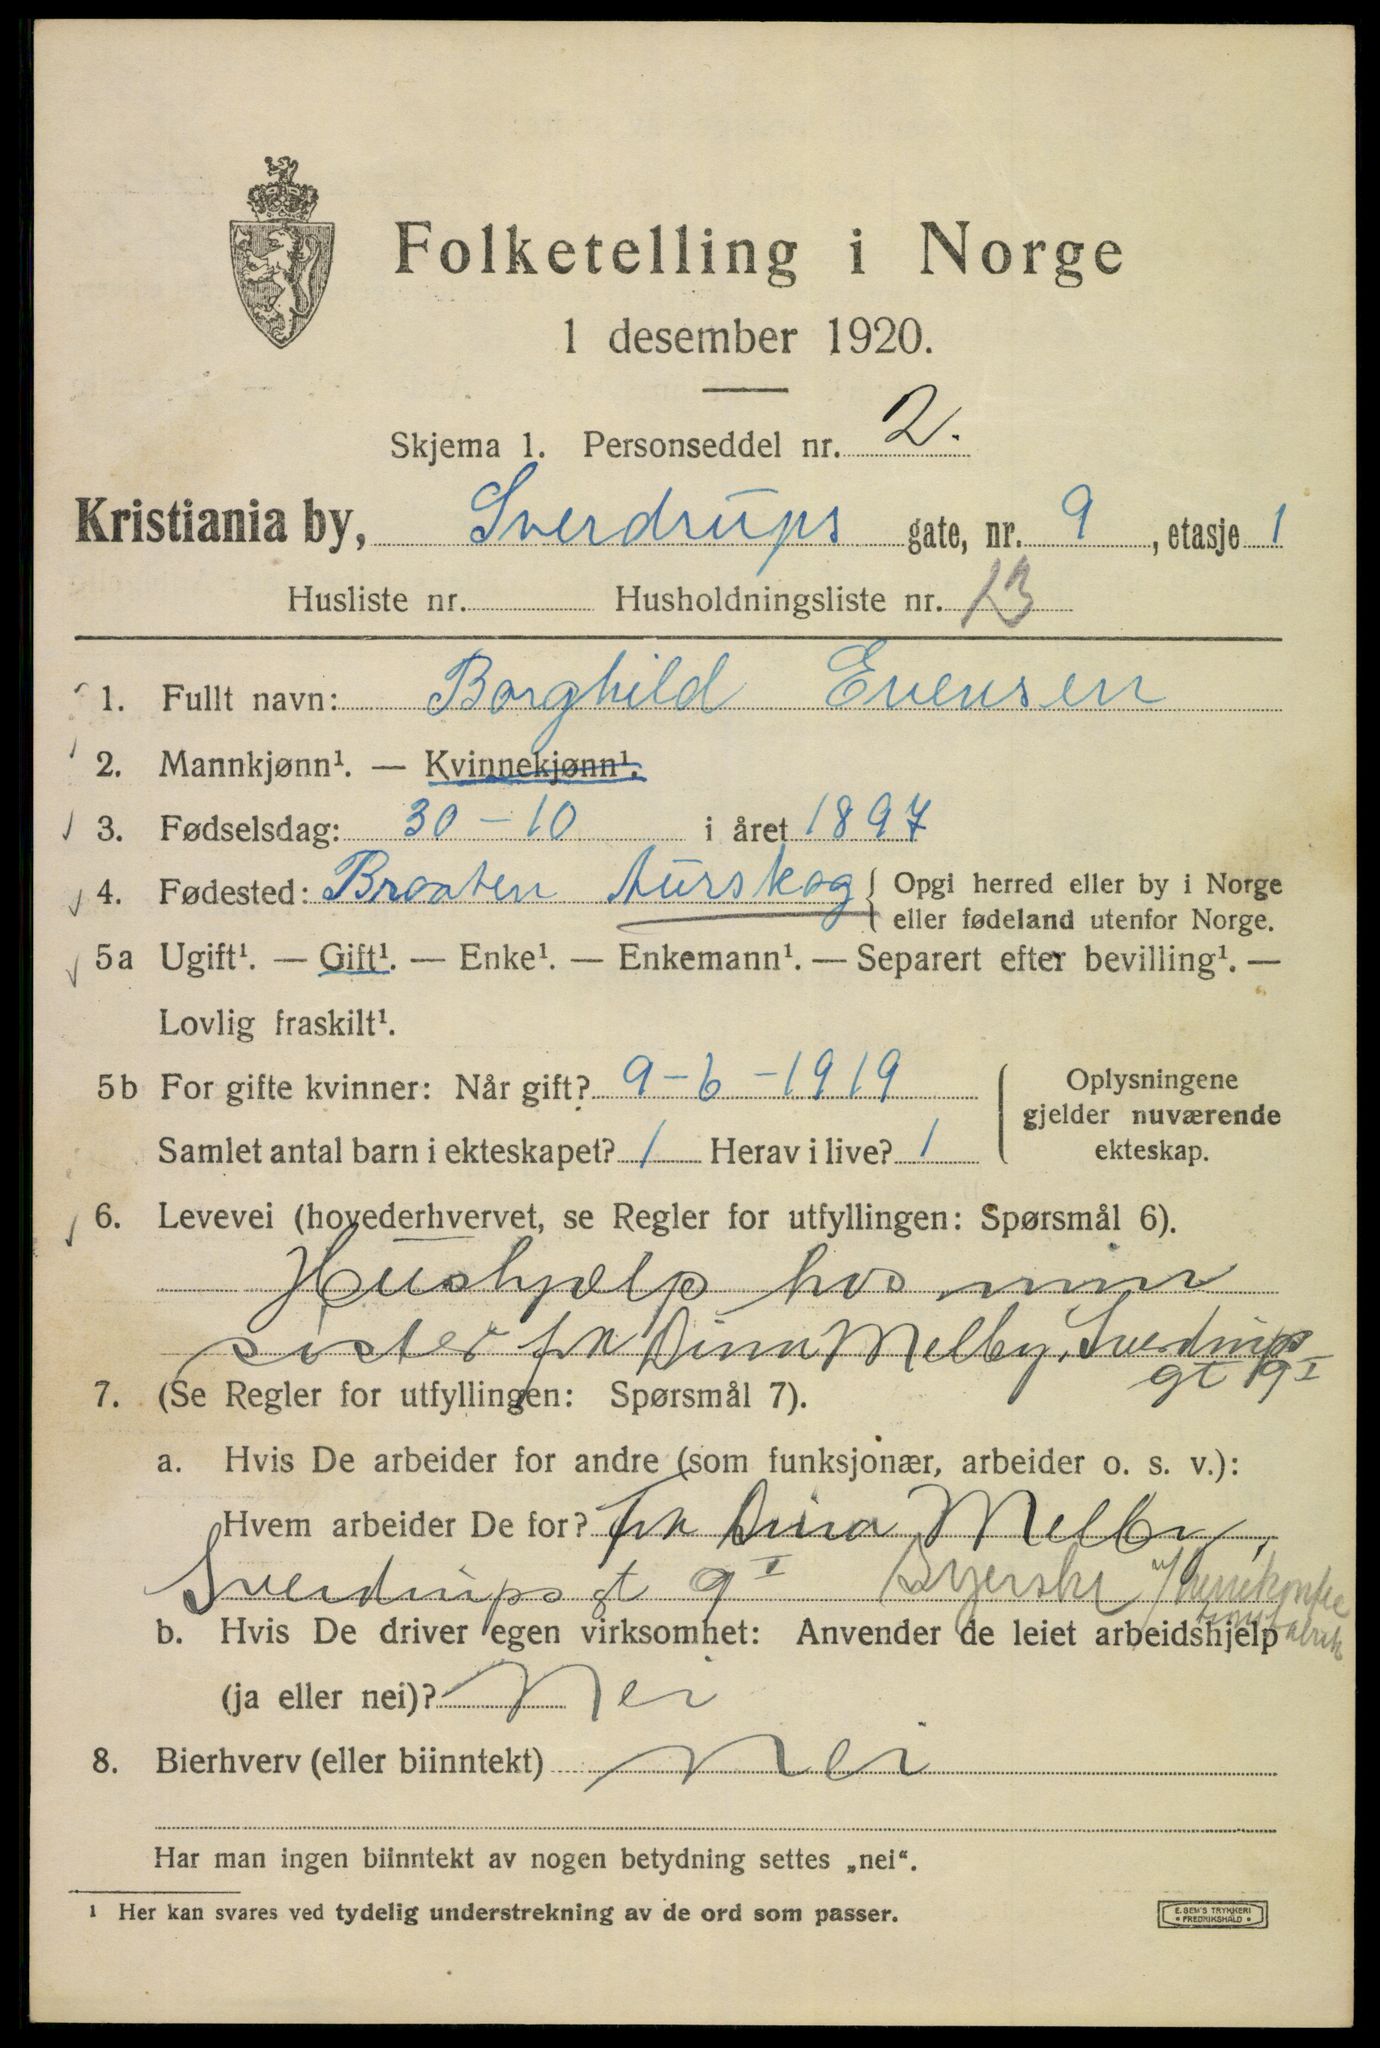 Folketelling i Norge
1 desember 1920.
Skjema 1. Personseddel nr. 2.
Kristiania by, Sverdrups gate, nr. 9, etasje 1
Husliste nr. Husholdningsliste nr. 13
1. Fullt navn: Borghild Evensen
2. Mannkjønn¹. — Kvinnekjønn¹.
3. Fødselsdag: 30-10 i året 1897
4. Fødested: Braaten Aurskog { Opgi herred eller by i Norge
eller fødeland utenfor Norge.
5a Ugift¹. — Gift¹. — Enke¹. — Enkemann¹. — Separert efter bevilling¹. —
Lovlig fraskilt¹.
5b For gifte kvinner: Når gift? 9-6-1919
Samlet antal barn i ekteskapet? 1 Herav i live? 1
Oplysningene
gjelder nuværende
ekteskap.
6. Levevei (hovederhvervet, se Regler for utfyllingen: Spørsmål 6).
Hushjælp hos min
søster frk Dina Melby, Sverdrups
gt 9 I
7. (Se Regler for utfyllingen: Spørsmål 7).
a. Hvis De arbeider for andre (som funksjonær, arbeider o. s. v.):
Hvem arbeider De for? frk Dina Melby,
Sverdrups gt 9 I Syerske
b. Hvis De driver egen virksomhet: Anvender de leiet arbeidshjelp
(ja eller nei)? Nei
8. Bierhverv (eller biinntekt) nei
Har man ingen biinntekt av nogen betydning settes „nei“.
1 Her kan svares ved tydelig understrekning av de ord som passer.
E. SEM'S TRYKKERI
• FREDRIKSHALD •